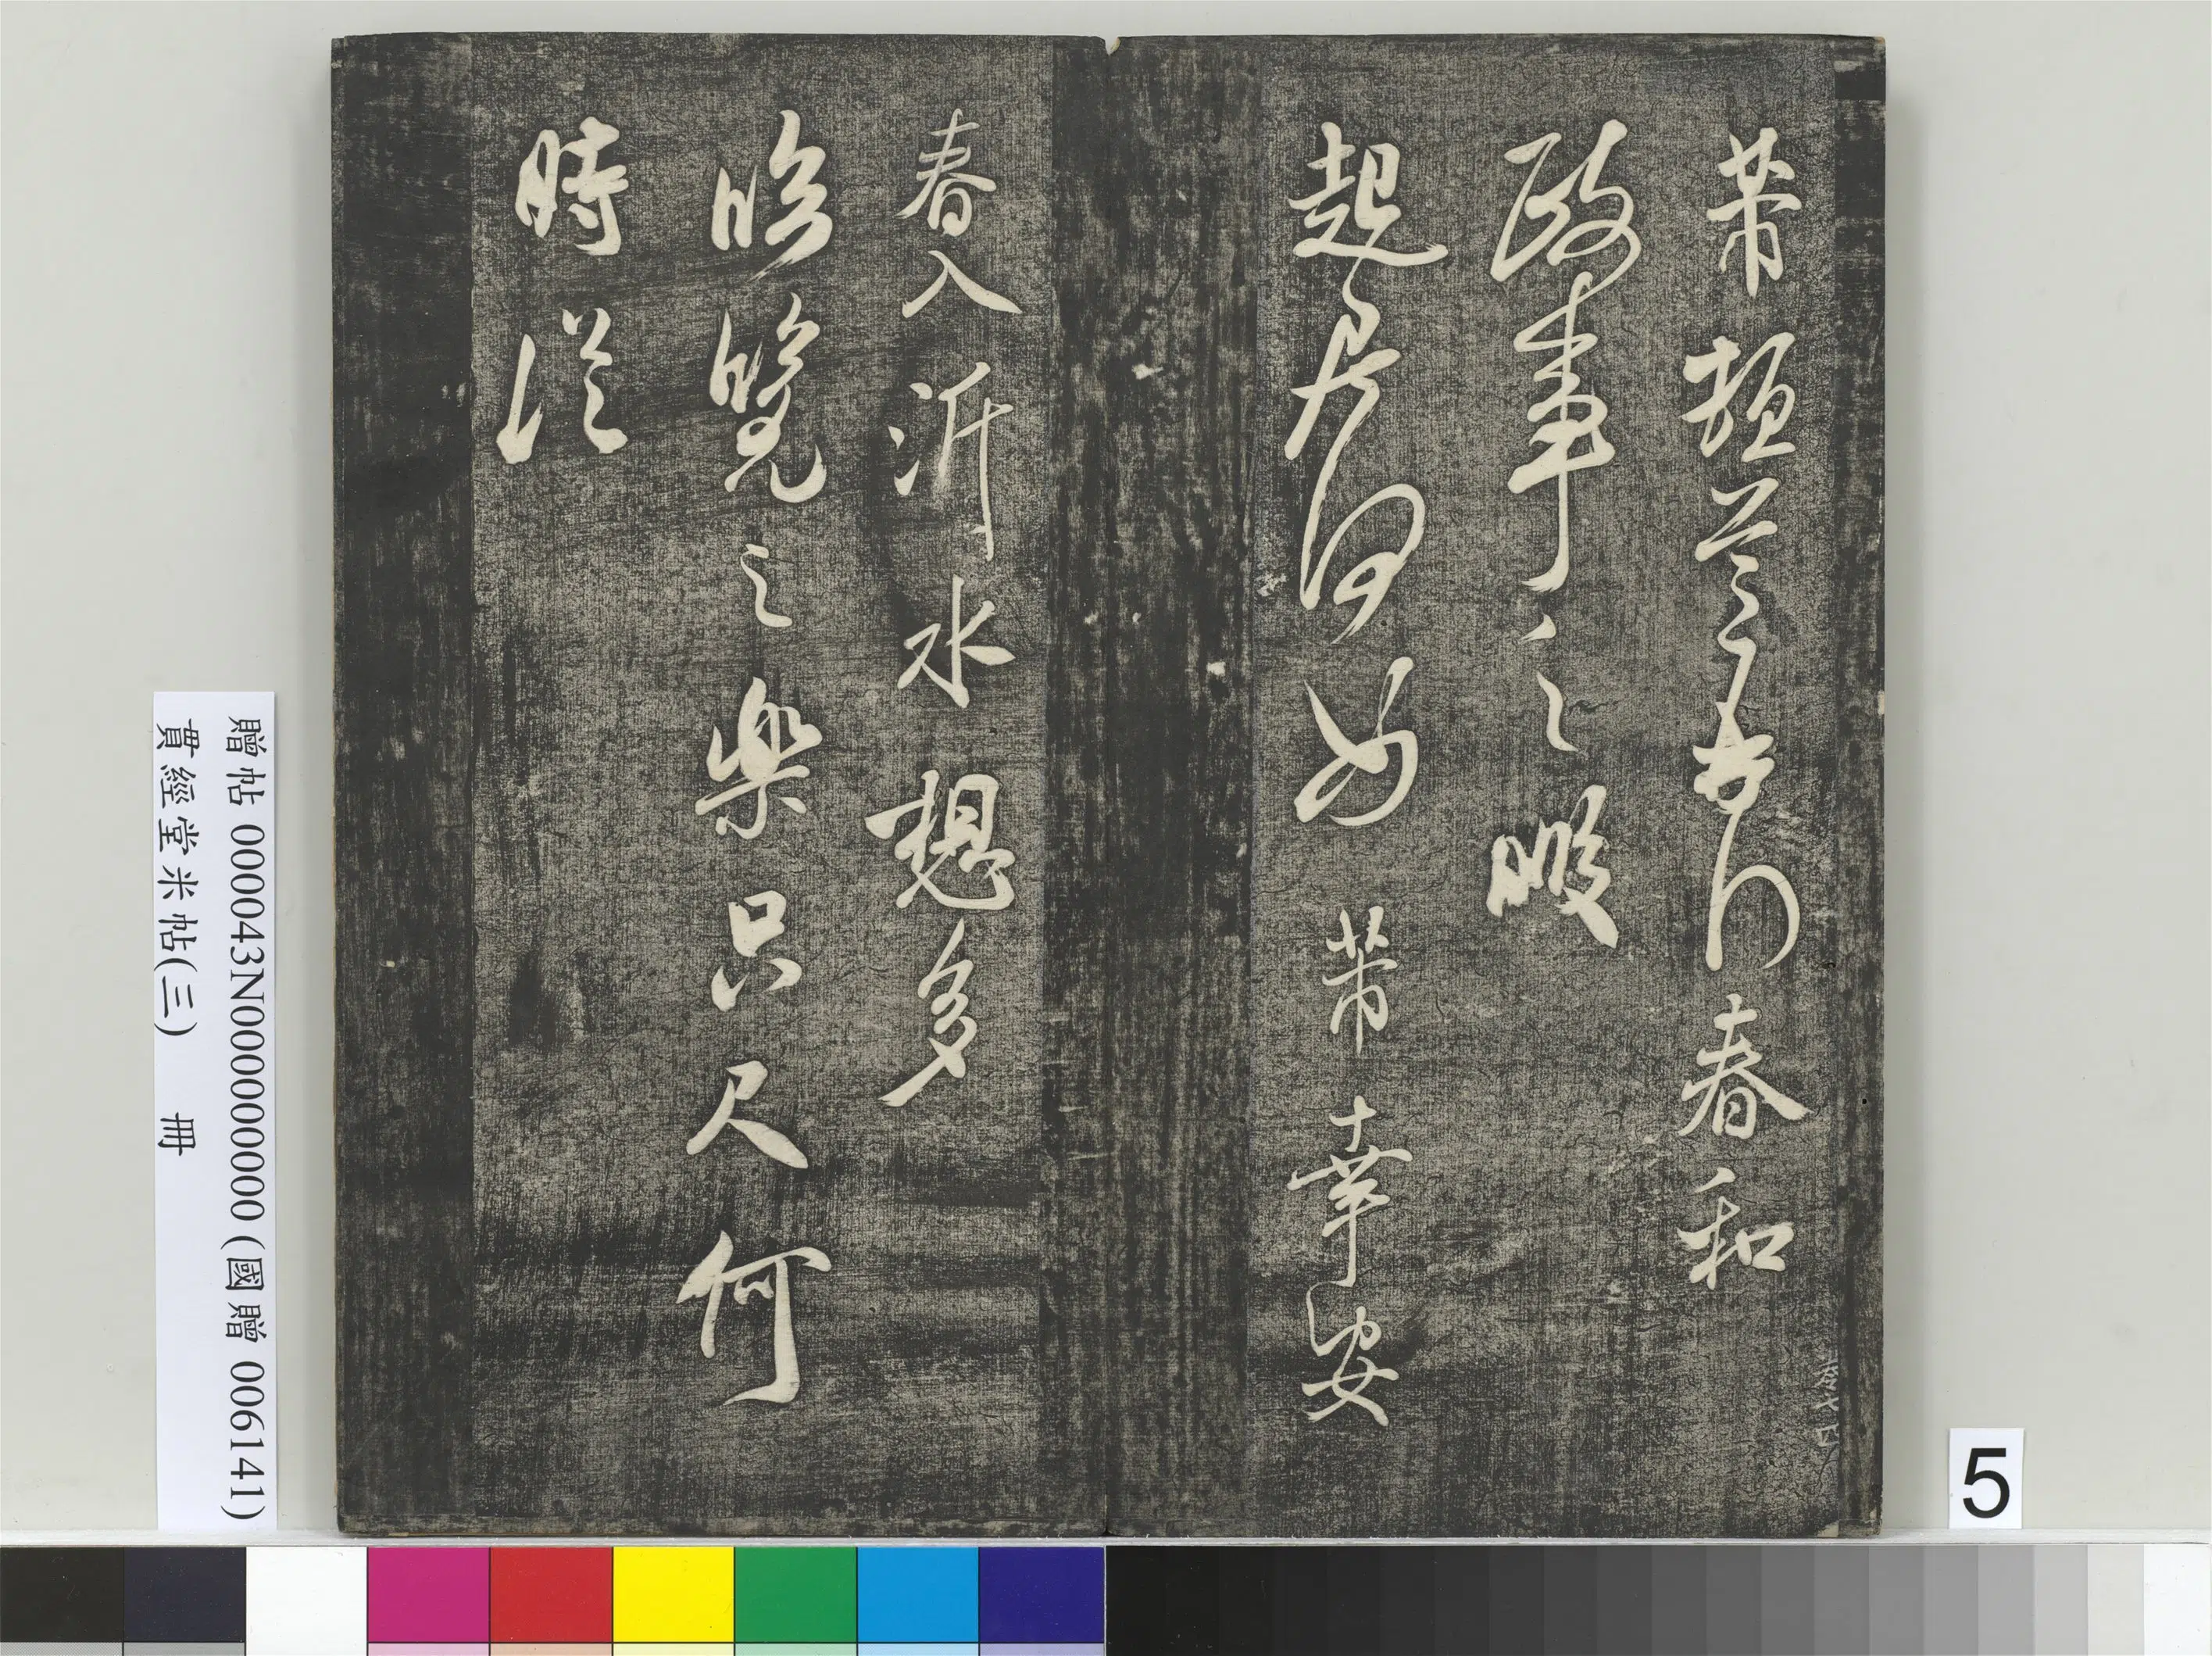 芾頓首啓春和
政事之暇
起居何如芾幸安
春入沂水想多
臨覽之樂只尺何
時從
贈帖 000043N000000000 (國贈 006141)
貫經堂米帖(三) 冊
5